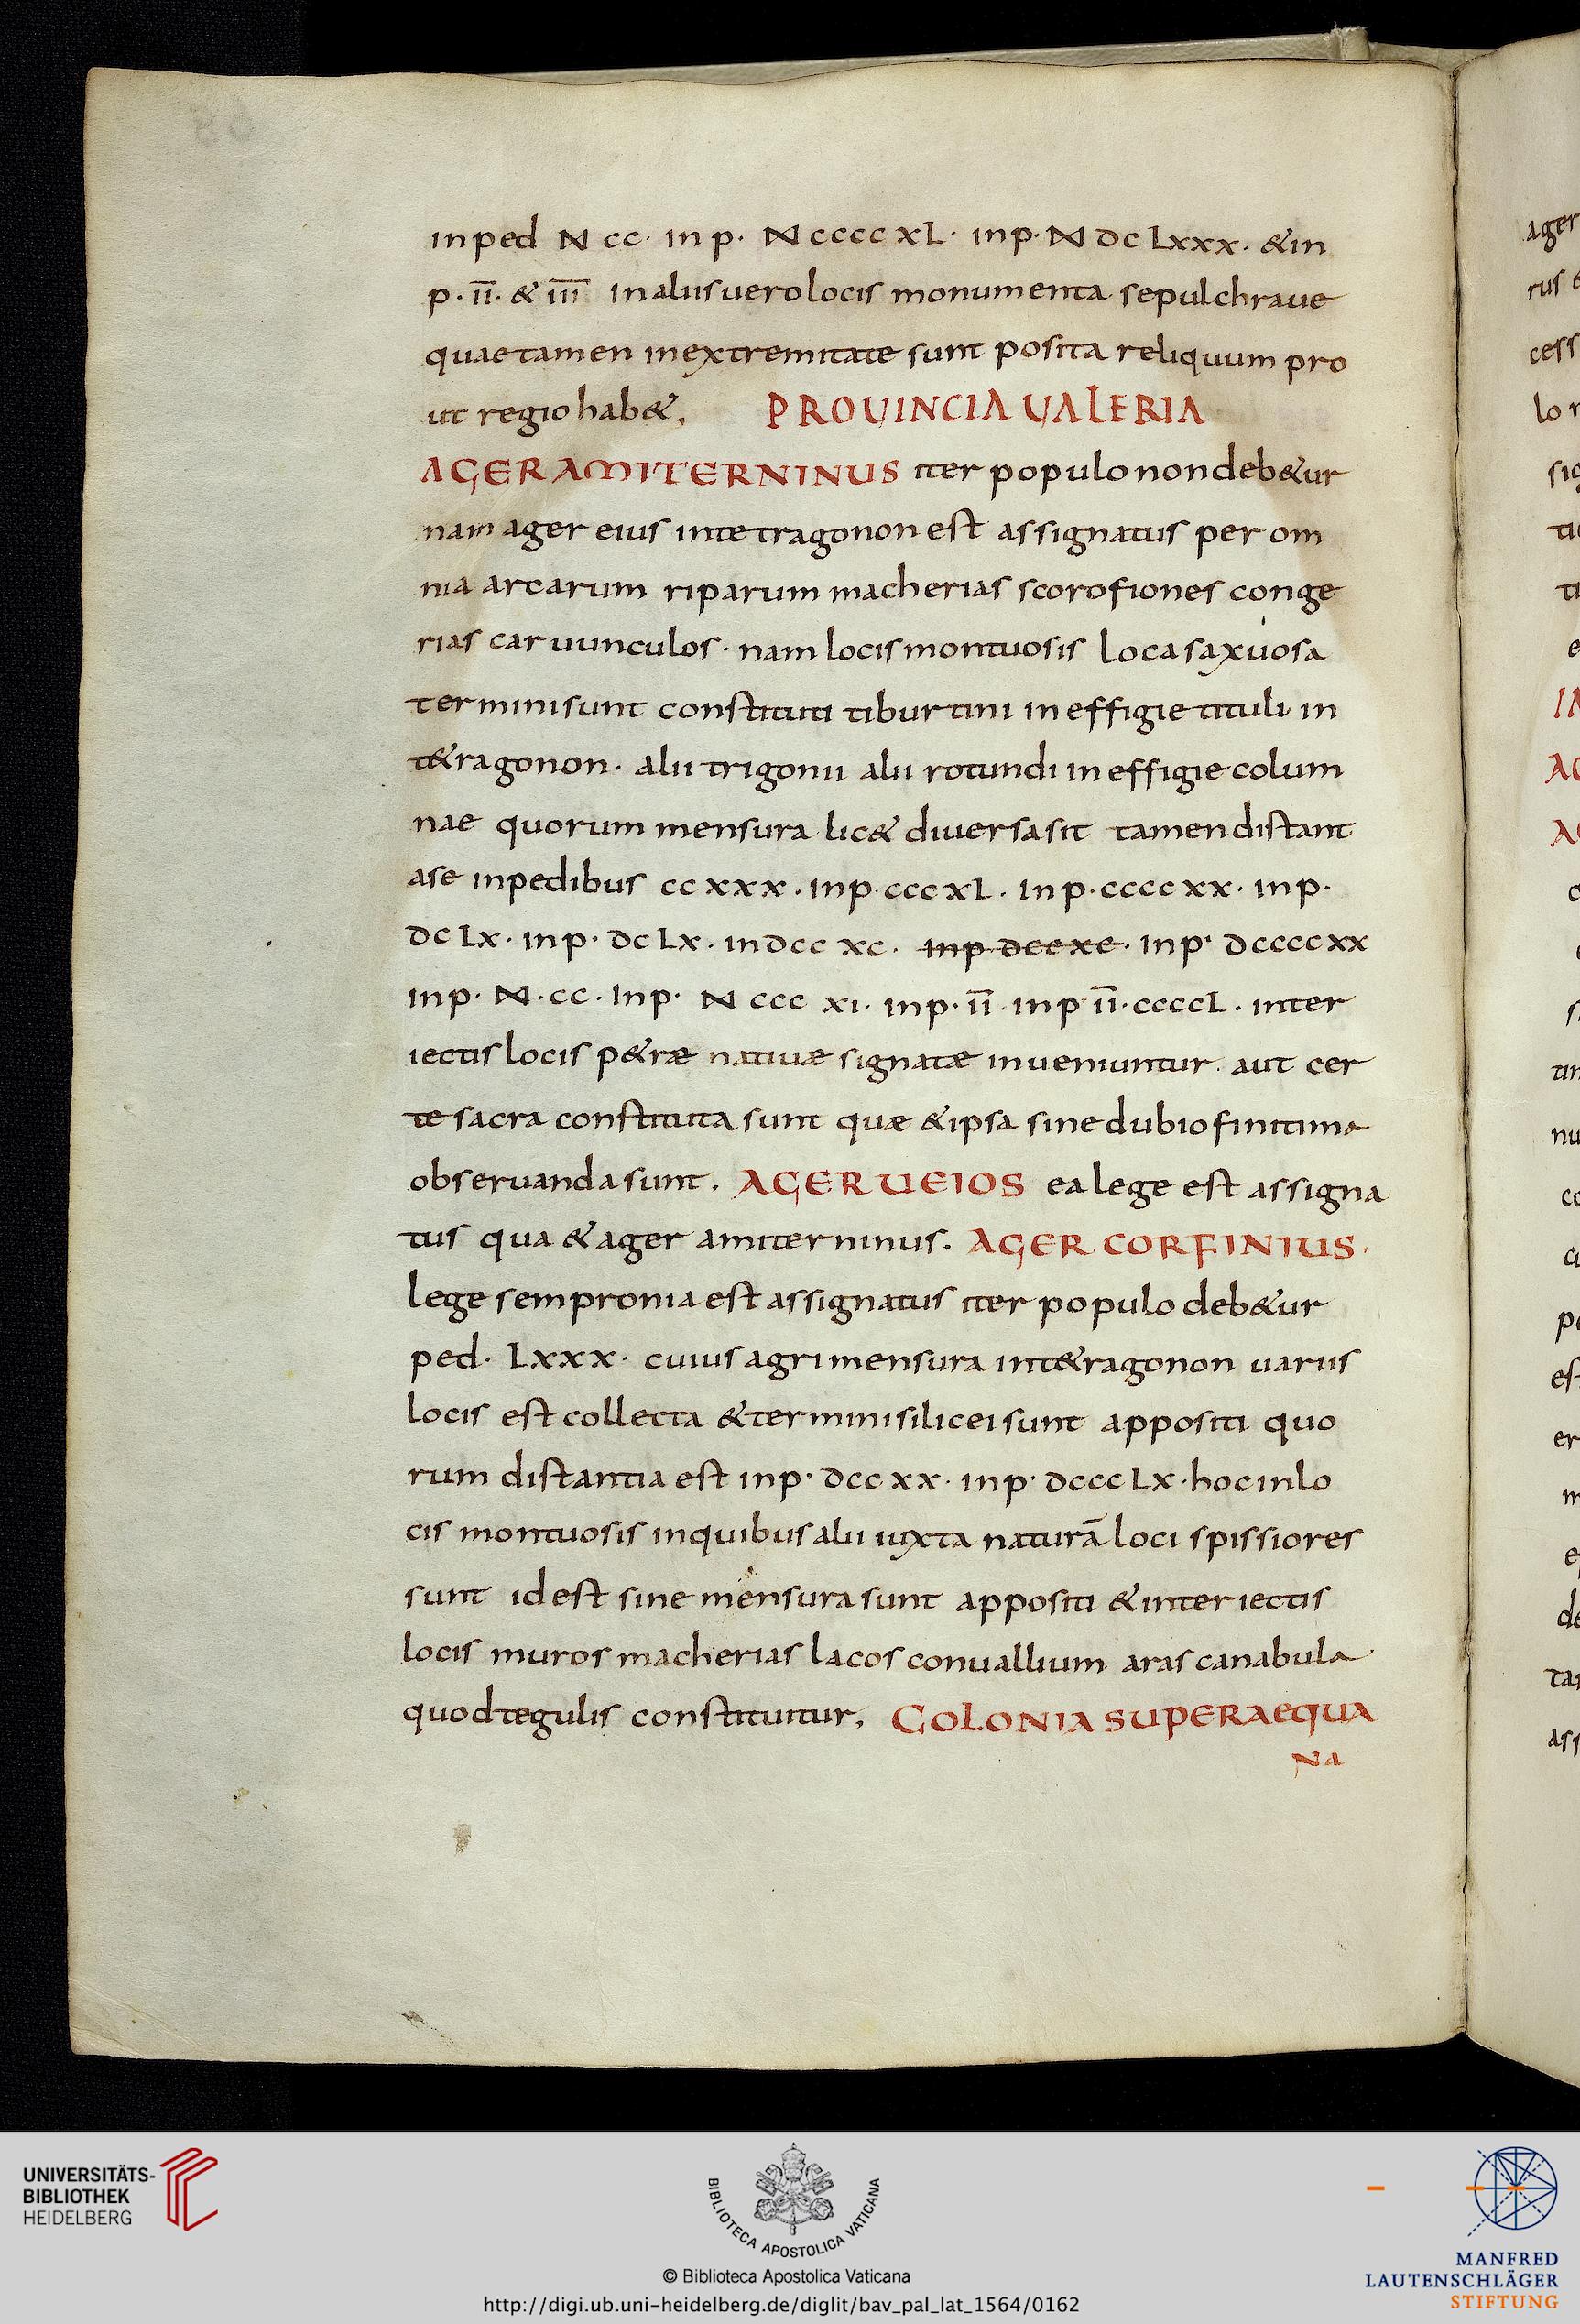 inped N cc· inp· N cccc xL· inp· N dc Lxxx· &in
p· II· & III inaliis uero locis monumenta sepulchraue
quae tamen inextremitate sunt posita reliquum pro
ut regio hab&, PROUINCIA UALERIA
AGER AMITERNINUS iter populo non deb&ur
nam ager eius inte tragonon est assignatus per om
nia arcarum riparum macherias scorofiones conge
rias caruunculos· nam locis montuosis loca saxuosa
termini sunt constituti tiburtini in effigie tituli in
t&ragonon· alii trigonii alii rotundi in effigie colum
nae quorum mensura lic& diuersa sit tamen distant
ase inpedibus cc xxx· inp· ccc xL· inp· cccc xx· inp·
dc Lx· inp· dc Lx· in dcc xc· inp dcc xc· inp· dcccc xx
inp· N· cc· Inp· N ccc xi· inp· II· inp· II· ccccL· inter
iectis locis p&ræ natiuæ signatæ inueniuntur· aut cer
te sacra constituta sunt quæ & ipsa sine dubio finitima
obseruanda sunt· AGER UEIOS ea lege est assigna
tus qua & ager amiterninus· AGER CORFINIUS·
lege sempronia est assignatus iter populo deb&ur
ped· Lxxx· cuius agri mensura int&ragonon uariis
locis est collecta & termini silicei sunt appositi quo
rum distantia est inp· dcc xx· inp· dccc Lx· hoc inlo
cis montuosis inquibus alii iuxta naturā loci spissiores
sunt id est sine mensura sunt appositi & interiectis
locis muros macherias lacos conuallium aras canabula
quod tegulis constituitur, COLONIA SUPERAEQUA
NA
UNIVERSITÄTS-
BIBLIOTHEK
HEIDELBERG
BIBLIOTECA APOSTOLICA VATICANA
© Biblioteca Apostolica Vaticana
http://digi.ub.uni-heidelberg.de/diglit/bav_pal_lat_1564/0162
MANFRED
LAUTENSCHLÄGER
STIFTUNG